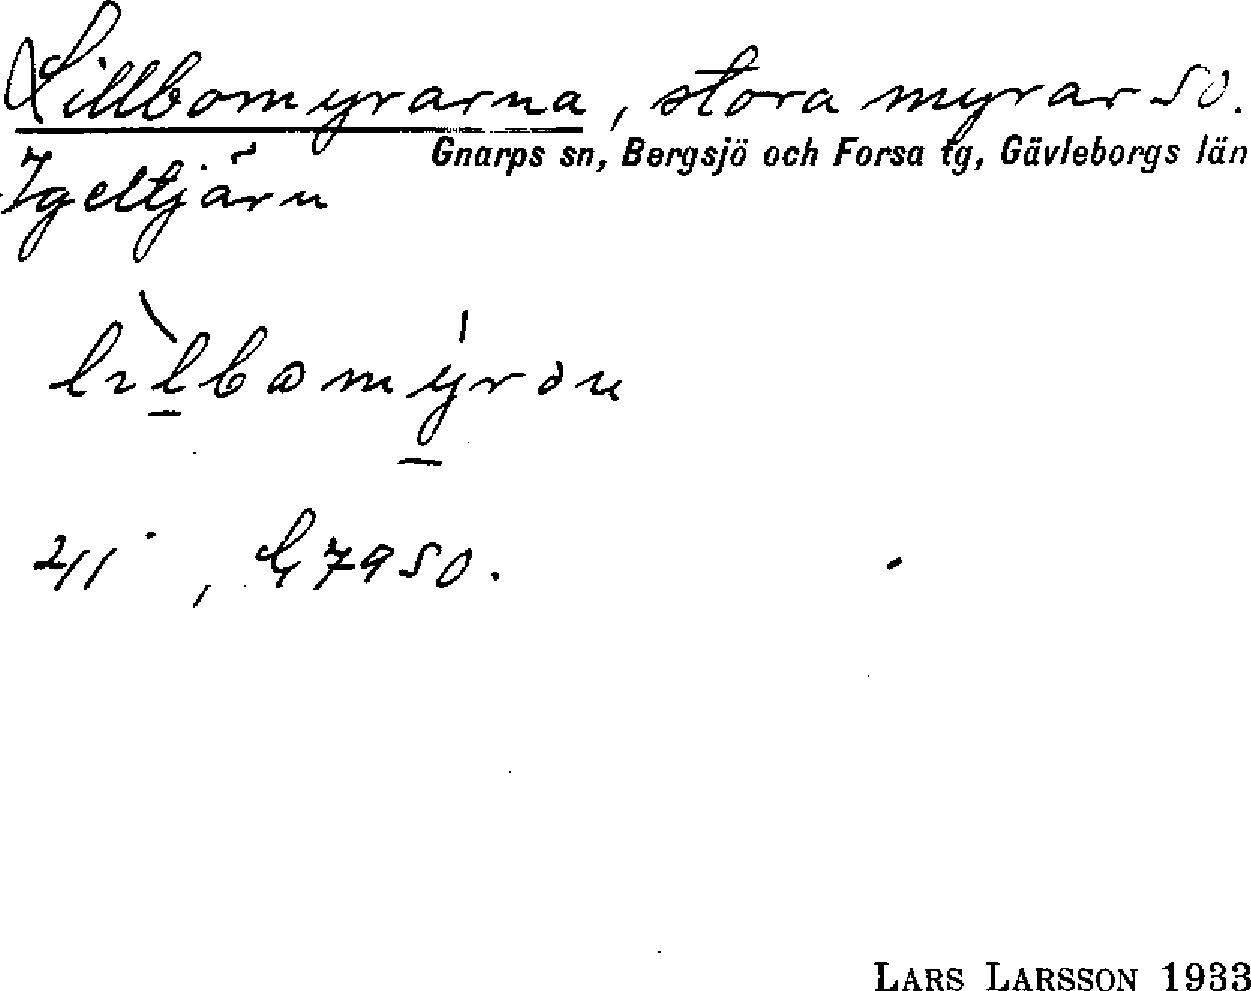 Lillbomyrarna, stora myrar SO.
Gnarps sn, Bergsjö och Forsa tg, Gävleborgs län
Igeltjärn
lılbωmyrɔn
2/1 , G 7950.
LARS LARSSON 1933